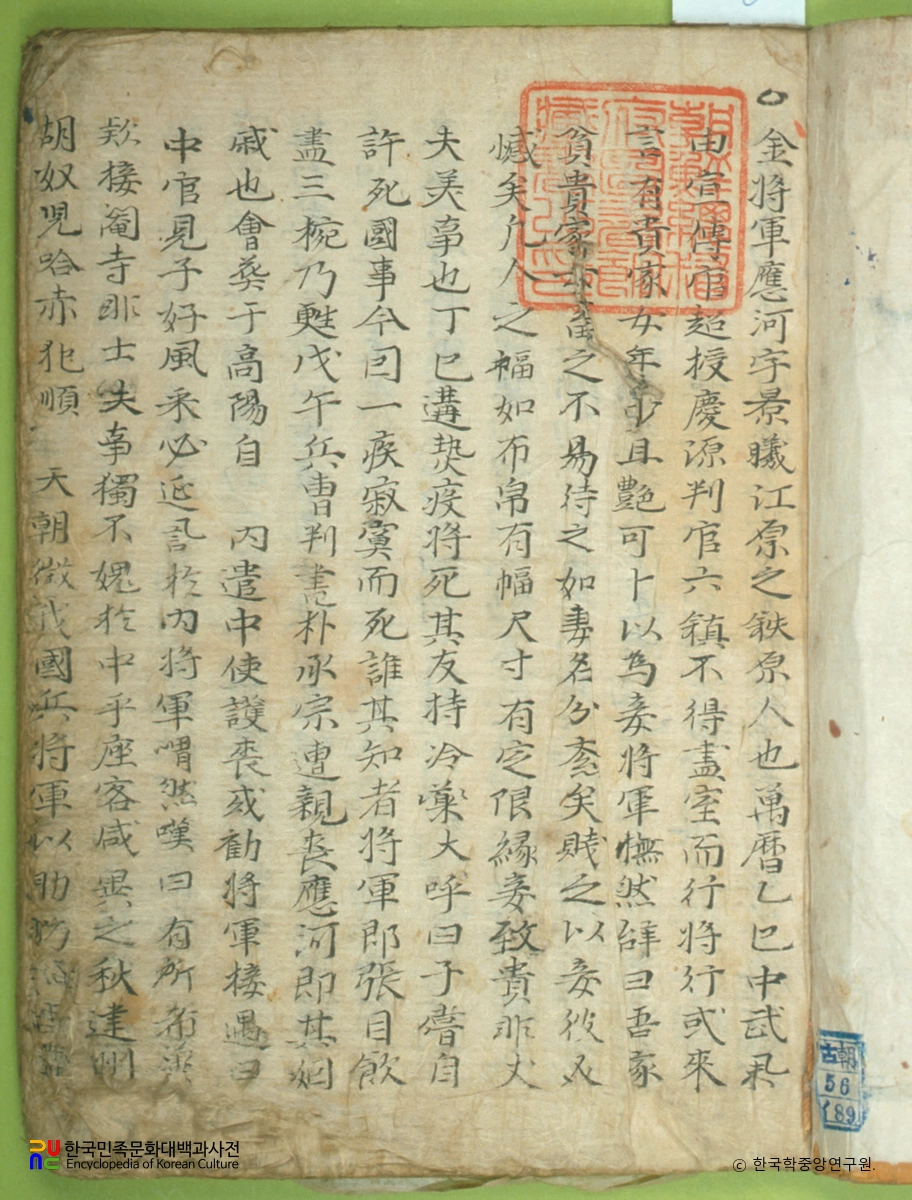 金將軍應河字景曦江原之鉄原人也萬曆乙巳中武科
由宣傳官超授慶源判官六鎮不得盡室而行將行或來
言有貴家女年少且艷可卜以爲妾將軍憮然辞曰吾家
貧貴家女畜之不易待之如妻名分紊矣賤之以妾彼又
憾矣凡人之幅如布帛有幅尺寸有定限緣妾致貴非丈
夫美事也丁巳遘熱疫將死其友持冷藥大呼曰子嘗自
許死國事今因一疾寂寞而死誰其知者將軍即張目飲
盡三椀乃甦戊午兵曹判書朴承宗遭親喪應河即其姻
戚也會葬于高陽自 內遣中使護喪或勸將軍接遇曰
中官見子好風采必延訊於內將軍喟然嘆曰有所希冀
欵接閹寺非士夫事獨不媿於中乎座客咸異之秋建州
胡奴児哈赤犯順 天朝徵我國兵將軍以助防將
朝鮮總督府圖書館藏書之印
古朝
56
イ89
한국민족문화대백과사전
Encyclopedia of Korean Culture
© 한국학중앙연구원.